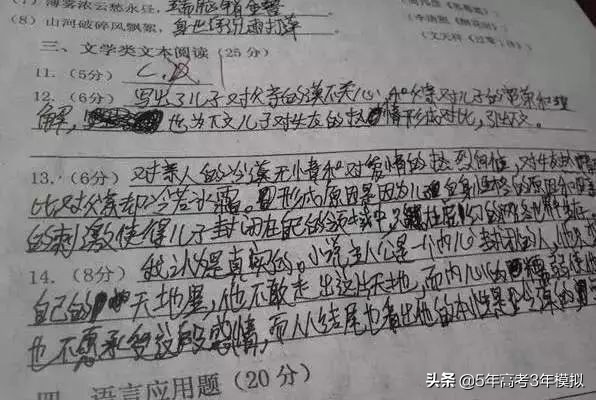 (7) 薄雾浓云愁永昼,瑞脑销金兽
(8) 山河破碎风飘絮,身世浮沉雨打萍
(文天祥《过零丁洋》)
三、文学类文本阅读(25分)
11. (5分) C.D
12. (6分) 写出了儿子对父亲的漠不关心,和父亲对儿子的宽容和理
解,也为下文儿子对女友的热情形成对比,引出下文。
13. (6分) 对亲人的冷漠无情和对爱情的热烈
比对父亲却冷若冰霜。形成原因是因为儿自身
的刺激使得儿子封闭在自己的领域中
14. (8分) 我认为是真实的。小说主人公是一个内心封闭的人,他
自己的天地里,他不敢走出这片天地,而内心的
也不愿承受这段感情,而从结尾也看出他的本性是冷漠的
四、语言应用题(20分)
头条 @5年高考3年模拟